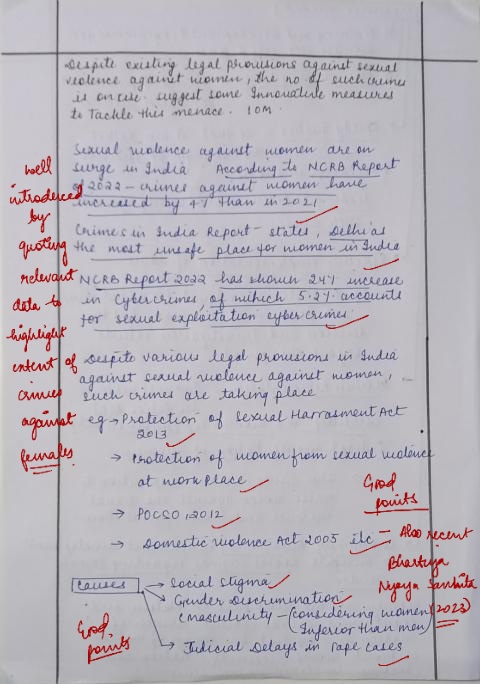 Despite existing legal provisions against sexual
violence against women, the no of such crimes
is on rise. suggest some Innovative measures
to Tackle this menace. 10M.
Sexual violence against women are on
surge in India According to NCRB Report
of 2022 - crimes against women have
increased by 4% than in 2021
Crimes in India Report - states, Delhi as
the most unsafe place for women in India
NCRB Report 2022 has shown 24% increase
in Cybercrimes, of which 5.2% accounts
for sexual exploitation cyber crimes.
well
introduced
by
quoting
relevant
data to
highlight
extent of
crimes
against
females
Despite various legal provisions in India
against sexual violence against women,
such crimes are taking place
eg → Protection of Sexual Harrasment Act
2013
→ Protection of women from sexual violence
at work Place
→ POCSO, 2012
→ Domestic violence Act 2005 etc
Good
points
- Also recent
Bhartiya
Nyaya Sanhita
(2023)
Causes → Social stigma
→ Gender Discrimination
(masculinity - (considering women
Inferior than men)
→ Judicial Delays in rape cases
Good
points